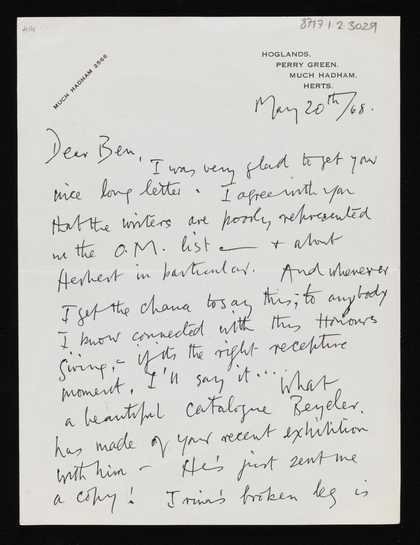 8717.1.2.3029
MUCH HADHAM 2566
HOGLANDS,
PERRY GREEN,
MUCH HADHAM,
HERTS.
May 20th/68.
Dear Ben,
I was very glad to get your
nice long letter. I agree with you
that the writers are poorly represented
in the O.M. list — + about
Herbert in particular. And whenever
I get the chance to say this, to anybody
I know connected with this Honours
giving, – if its the right receptive
moment, I'll say it... What
a beautiful catalogue Beyeler.
has made of your recent exhibition
with him – He's just sent me
a copy! Irina's broken leg is